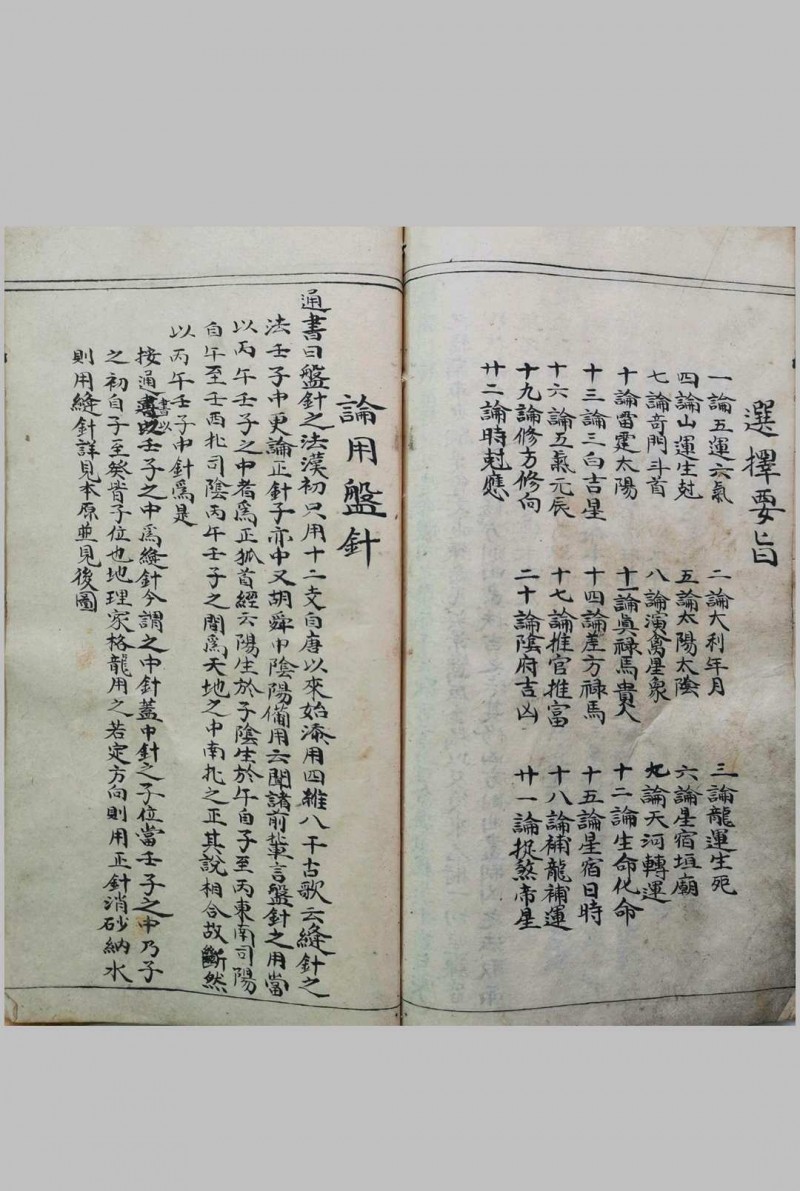 選擇要旨
一論五運六氣 二論大利年月 三論龍運生死
四論山運生尅 五論太陽太陰 六論星宿垣廟
七論奇門斗首 八論演禽星象 九論天河轉運
十論雷霆太陽 十一論眞禄馬貴人 十二論生命化命
十三論三白吉星 十四論差方禄馬 十五論星宿日時
十六論五氣元辰 十七論推官推富 十八論補龍補運
十九論修方修向 二十論陰府吉凶 廿一論捉煞帝星
廿二論時尅應
論用盤針
通書曰盤針之法漢初只用十二支自唐以來始添用四維八干古歌云縫針之
法壬子中更論正針子亦中又胡舜中陰陽備用云聞諸前輩言盤針之用當
以丙午壬子之中者爲正狐首經云陽生於子陰生於午自子至丙東南司陽
自午至壬西北司陰丙午壬子之間爲天地之中南北之正其說相合故斷然
以丙午壬子中針爲是
按通書以壬子之中爲縫針今謂之中針蓋中針之子位當壬子之中乃子
之初自子至癸皆子位也地理家格龍用之若定方向則用正針消砂納水
則用縫針詳見本原並見後圖